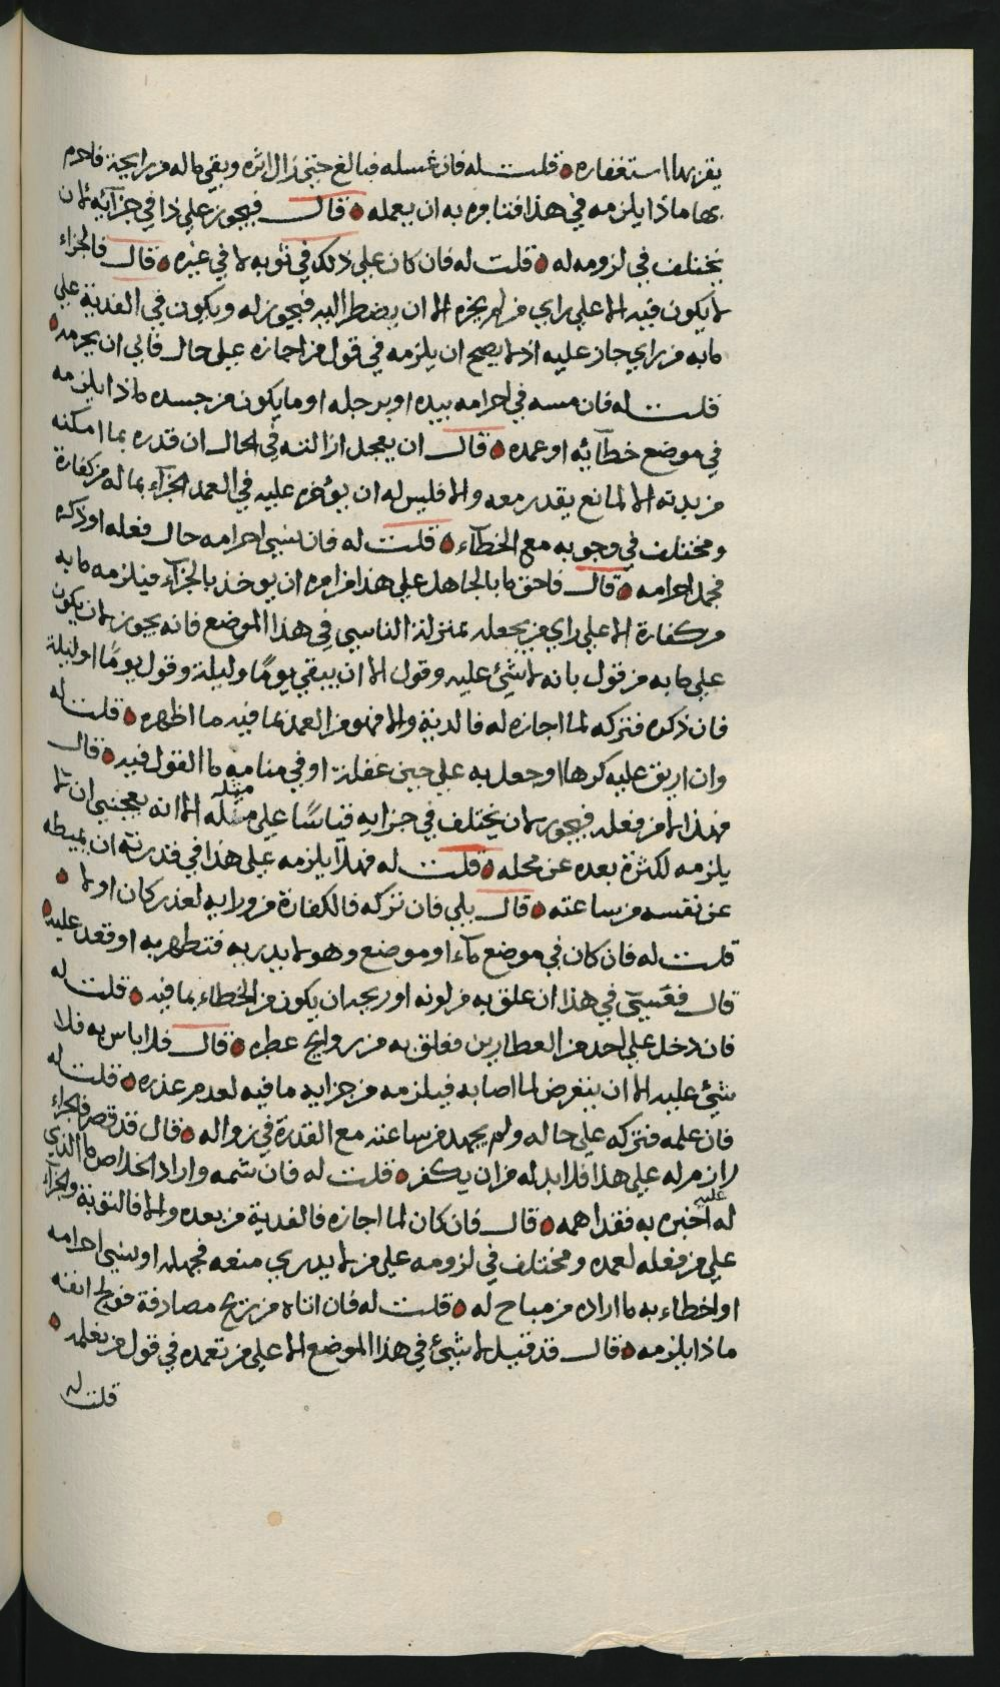 يقربها استغفاره قلت له فان غسله فبالغ حتى زال اثره وبقي ما له من رايحة فاحرم
بها ماذا يلزمه في هذا فتامره به ان يعمله قال فيجوز على ذا في جزآئه لان
يختلف في لزومه له قلت له فان كان على ذلك في ثوبه لا في غيره قال فالجزاء
لا يكون فيه الا على راي من لم يجزه الا ان يضطر اليه فيجوز له ويكون في الفدية على
ما به من راي جاز عليه اذ لا يصح ان يلزمه في قول من اجازه على حال فاني ان يحرمه
قلت له فان مسه في احرامه بيده او برجله او ما يكون من جسده ماذا يلزمه
في موضع خطآئه او عمده قال ان يعجل ازالته في الحال ان قدره بما امكنه
من بدنه الا لمانع يقدر معه والا فليس له ان يؤخره عليه في العمد الجزآء بما له من كفارة
ومختلف في وجوبه مع الخطآء قلت له فان نسي احرامه حال فعله او ذكره
فجهد احرامه قال فاحق ما بالجاهل على هذا من امره ان يوخذ بالجزآء فيلزمه ما به
من كفارة الا على راي من يجعله بمنزلة الناسي في هذا الموضع فانه يجوز لان يكون
على ما به من قول بانه لا شيء عليه وقول الا ان يبقى يومًا وليلة وقول يومًا او ليلة
فان ذكره فتركه لما اجازه له فالدية والا فهو من العمد بما فيه ما اظهره قلت له
وان اريق عليه كرها او جعل به على حين غفلة او في منامه ما القول فيه قال
فهذا لا من فعله فيجوز لان يختلف في جزايه قياسًا على مثله الا انه يعجبني ان لا
يلزمه لكثرة بعده عن محله قلت له فهلا يلزمه على هذا في قدرته ان يميطه
عن نفسه من ساعته قال بلى فان تركه فالكفارة من ورايه لعذر كان او لا
قلت له فان كان في موضع مآء او موضع وهو لا يدري به فتطهر به او قعد عليه
قال فعسى في هذا ان علق به من لونه او ريحه ان يكون من الخطاء بما فيه قلت له
فان دخل على احد من العطارين فعلق به من روايح عطره قال فلا باس به فلا
شيء عليه الا ان يتعرض لما اصابه فيلزمه من جزايه ما فيه لعدم عذره قلت له
فان علمه فتركه على حاله ولم يجهد من ساعته مع القدرة في زواله قال قد قصر فالجزاء
لازم له على هذا فلا بد له من ان يكفر قلت له فان شمه واراد الخلاص ما الذي
له عليه اخبره به فقد اهمه قال فان كان لما اجازه فالفدية من بعده والا فالتوبة والجزآء
على من فعله لعمده ومختلف في لزومه على من لا يدري منعه فجهله او نسي احرامه
او اخطاء به ما اراده من مباح له قلت له فان اتاه من ريح مصادفة فولج انفه
ماذا يلزمه قال قد قيل لا شيء في هذا الموضع الا على من تعمده في قول من يعلمه
قلت له